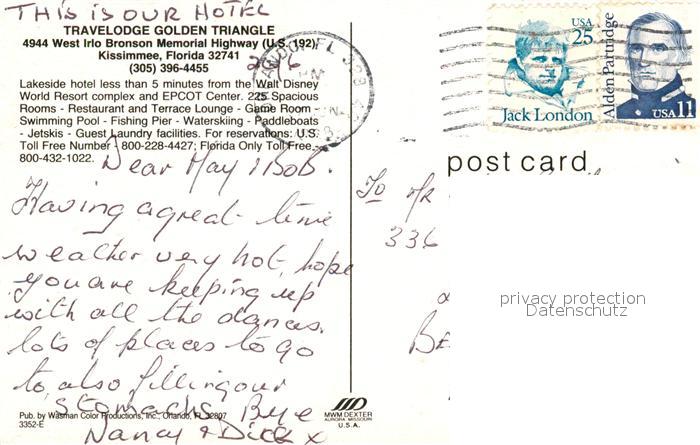 THIS IS OUR HOTEL
TRAVELODGE GOLDEN TRIANGLE
4944 West Irlo Bronson Memorial Highway (U.S. 192)
Kissimmee, Florida 32741
(305) 396-4455
Lakeside hotel less than 5 minutes from the Walt Disney
World Resort complex and EPCOT Center. 225 Spacious
Rooms - Restaurant and Terrace Lounge - Game Room -
Swimming Pool - Fishing Pier - Waterskiing - Paddleboats
- Jetskis - Guest Laundry facilities. For reservations: U.S.
Toll Free Number - 800-228-4427; Florida Only Toll Free,
800-432-1022.
Dear May & Bob.
Having a great time
weather very hot, hope
you are keeping up
with all the dances.
lots of places to go
to, also filling our
Stomachs Bye
Nancy & Dick x
Pub. by Wasman Color Productions, Inc., Orlando, FL 32807
3352-E
MWM DEXTER
AURORA MISSOURI
U.S.A.
USA
25
Jack London
Alden Partridge
USA 11
post card
To MR
336
BE
privacy protection
Datenschutz